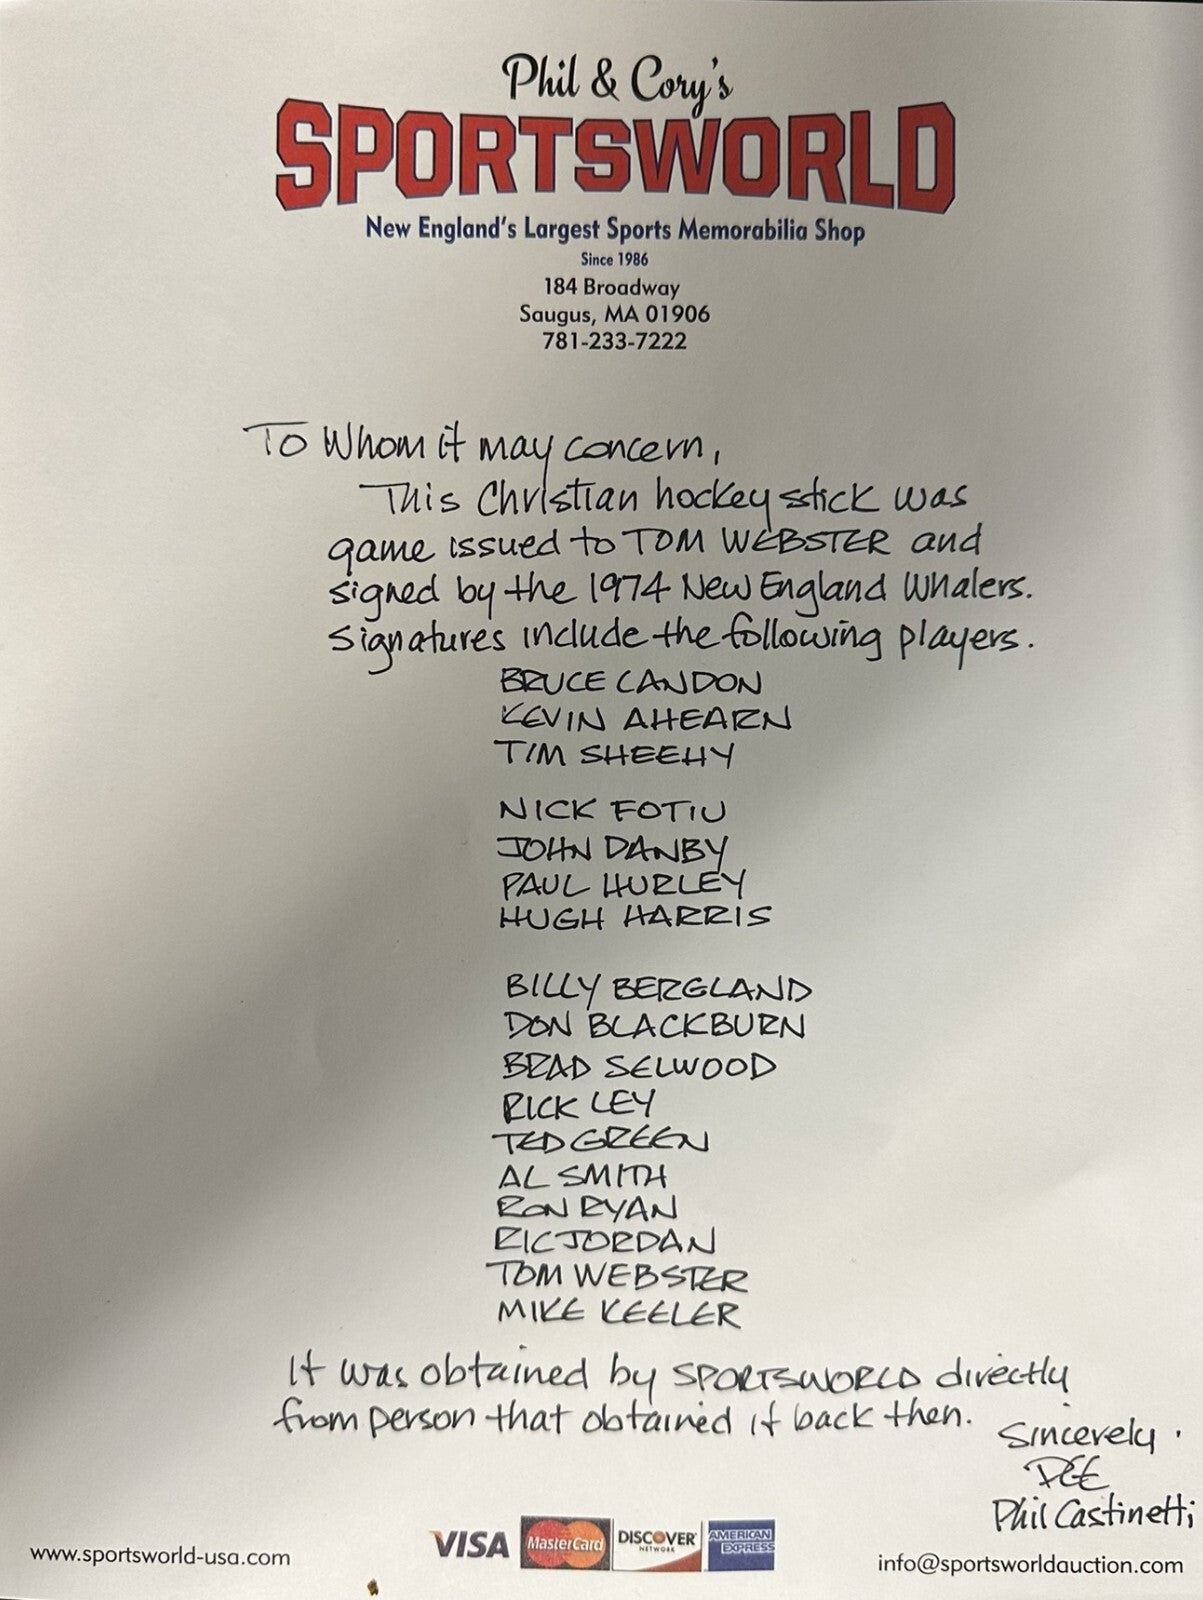 Phil & Cory's
SPORTSWORLD
New England's Largest Sports Memorabilia Shop
Since 1986
184 Broadway
Saugus, MA 01906
781-233-7222
To Whom it may concern,
This Christian hockey stick was
game issued to TOM WEBSTER and
signed by the 1974 New England Whalers.
Signatures include the following players.
BRUCE CANDON
KEVIN AHEARN
TIM SHEEHY
NICK FOTIU
JOHN DANBY
PAUL HURLEY
HUGH HARRIS
BILLY BERGLAND
DON BLACKBURN
BRAD SELWOOD
RICK LEY
TED GREEN
AL SMITH
RON RYAN
RIC JORDAN
TOM WEBSTER
MIKE KEELER
It was obtained by SPORTSWORLD directly
from person that obtained it back then.
Sincerely.
Phil Castinetti
VISA MasterCard DISCOVER NETWORK AMERICAN EXPRESS
www.sportsworld-usa.com
info@sportsworldauction.com